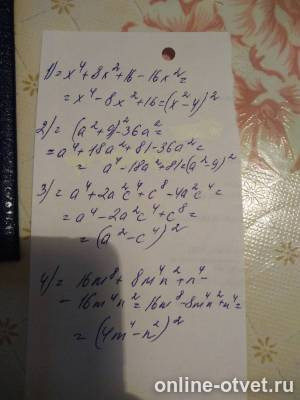 1) = x⁴+8x²+16-16x²=
= x⁴-8x²+16=(x²-4)²
2) = (a²+9)²-36a²=
= a⁴+18a²+81-36a²=
= a⁴-18a²+81=(a²-9)²
3) = a⁴+2a²c⁴+c⁸-4a²c⁴=
= a⁴-2a²c⁴+c⁸=
= (a²-c⁴)²
4) = 16m⁸+8m⁴n²+n⁴-
- 16m⁴n²=16m⁸-8m⁴n²+n⁴=
= (4m⁴-n²)²
online-otvet.ru